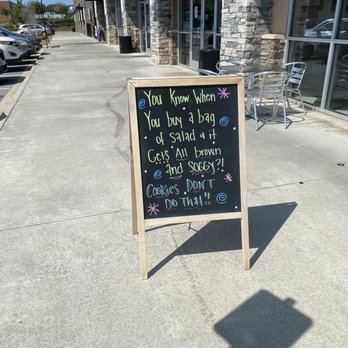 You Know When
You buy a bag
of salad & it
Gets All brown
and SOGGY?!
Cookies DON'T
Do That!!